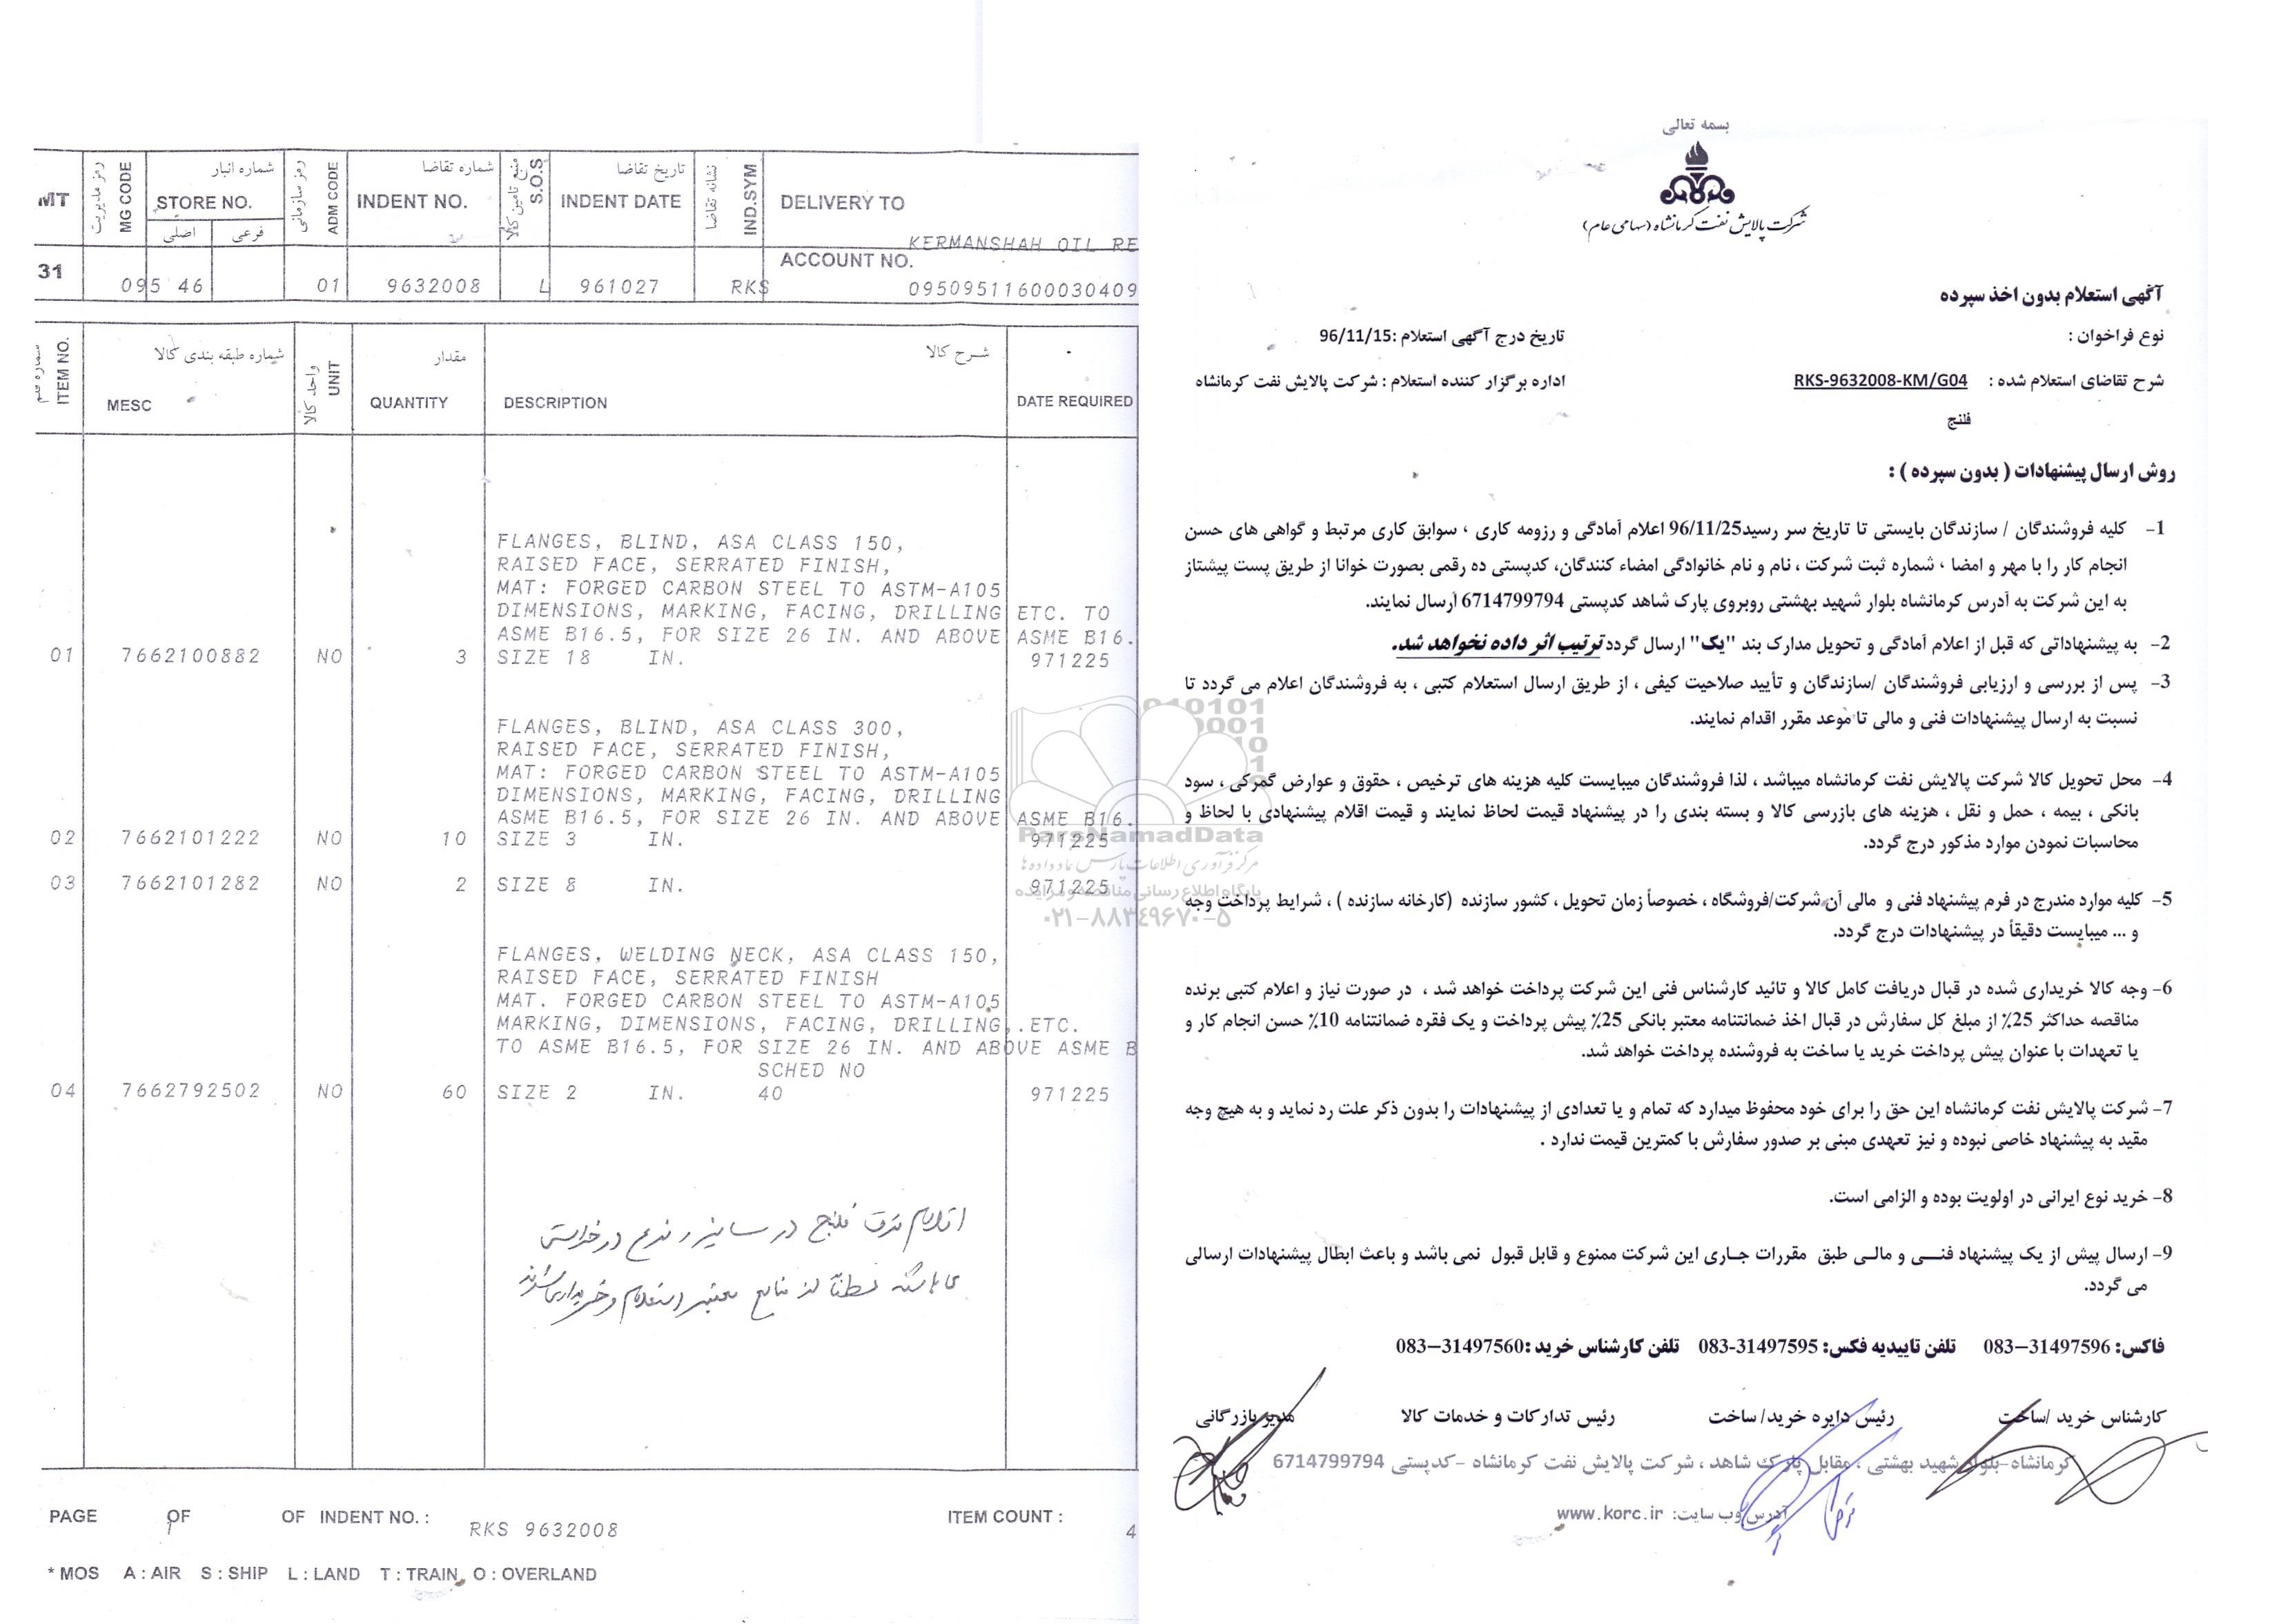 MT
رمز مدیریت
MG CODE
شماره انبار
STORE NO.
اصلی
فرعی
رمز سازمانی
ADM CODE
شماره تقاضا
INDENT NO.
منبع تامین کالا
S.O.S
تاریخ تقاضا
INDENT DATE
نشانه تقاضا
IND.SYM
DELIVERY TO
KERMANSHAH OIL RE
ACCOUNT NO.
31 095 46 01 9632008 L 961027 RKS 09509511600030409
ITEM NO.
شماره طبقه بندی کالا
MESC
واحد کالا
UNIT
مقدار
QUANTITY
شرح کالا
DESCRIPTION
DATE REQUIRED
FLANGES, BLIND, ASA CLASS 150,
RAISED FACE, SERRATED FINISH,
MAT: FORGED CARBON STEEL TO ASTM-A105
DIMENSIONS, MARKING, FACING, DRILLING ETC. TO
ASME B16.5, FOR SIZE 26 IN. AND ABOVE ASME B16.
01 7662100882 NO 3 SIZE 18 IN. 971225
FLANGES, BLIND, ASA CLASS 300,
RAISED FACE, SERRATED FINISH,
MAT: FORGED CARBON STEEL TO ASTM-A105
DIMENSIONS, MARKING, FACING, DRILLING
ASME B16.5, FOR SIZE 26 IN. AND ABOVE ASME B16.
02 7662101222 NO 10 SIZE 3 IN. 971225
03 7662101282 NO 2 SIZE 8 IN. 971225
FLANGES, WELDING NECK, ASA CLASS 150,
RAISED FACE, SERRATED FINISH
MAT. FORGED CARBON STEEL TO ASTM-A105
MARKING, DIMENSIONS, FACING, DRILLING,.ETC.
TO ASME B16.5, FOR SIZE 26 IN. AND ABOVE ASME B
SCHED NO
04 7662792502 NO 60 SIZE 2 IN. 40 971225
اقلام فوق فلنج در سایز و نوع درخواستی
می باشد لطفاً از منابع معتبر استعلام و خریداری شوند
PAGE 1 OF OF INDENT NO. : RKS 9632008 ITEM COUNT : 4
* MOS A : AIR S : SHIP L : LAND T : TRAIN O : OVERLAND
ParsNamadData
مرکز فرآوری اطلاعات پارس نماد داده ها
پایگاه اطلاع رسانی مناقصه و مزایده
۰۲۱-۸۸۳۴۹۶۷۰-۵
بسمه تعالی
شرکت پالایش نفت کرمانشاه (سهامی عام)
آگهی استعلام بدون اخذ سپرده
نوع فراخوان : تاریخ درج آگهی استعلام :96/11/15
شرح تقاضای استعلام شده : RKS-9632008-KM/G04 اداره برگزار کننده استعلام : شرکت پالایش نفت کرمانشاه
فلنج
روش ارسال پیشنهادات ( بدون سپرده ) :
1- کلیه فروشندگان / سازندگان بایستی تا تاریخ سر رسید96/11/25 اعلام آمادگی و رزومه کاری ، سوابق کاری مرتبط و گواهی های حسن
انجام کار را با مهر و امضا ، شماره ثبت شرکت ، نام و نام خانوادگی امضاء کنندگان، کدپستی ده رقمی بصورت خوانا از طریق پست پیشتاز
به این شرکت به آدرس کرمانشاه بلوار شهید بهشتی روبروی پارک شاهد کدپستی 6714799794 ارسال نمایند.
2- به پیشنهاداتی که قبل از اعلام آمادگی و تحویل مدارک بند "یک" ارسال گردد ترتیب اثر داده نخواهد شد.
3- پس از بررسی و ارزیابی فروشندگان /سازندگان و تأیید صلاحیت کیفی ، از طریق ارسال استعلام کتبی ، به فروشندگان اعلام می گردد تا
نسبت به ارسال پیشنهادات فنی و مالی تا موعد مقرر اقدام نمایند.
4- محل تحویل کالا شرکت پالایش نفت کرمانشاه میباشد ، لذا فروشندگان میبایست کلیه هزینه های ترخیص ، حقوق و عوارض گمرکی ، سود
بانکی ، بیمه ، حمل و نقل ، هزینه های بازرسی کالا و بسته بندی را در پیشنهاد قیمت لحاظ نمایند و قیمت اقلام پیشنهادی با لحاظ و
محاسبات نمودن موارد مذکور درج گردد.
5- کلیه موارد مندرج در فرم پیشنهاد فنی و مالی آن شرکت/فروشگاه ، خصوصاً زمان تحویل ، کشور سازنده (کارخانه سازنده ) ، شرایط پرداخت وجه
و ... میبایست دقیقاً در پیشنهادات درج گردد.
6- وجه کالا خریداری شده در قبال دریافت کامل کالا و تائید کارشناس فنی این شرکت پرداخت خواهد شد ، در صورت نیاز و اعلام کتبی برنده
مناقصه حداکثر 25٪ از مبلغ کل سفارش در قبال اخذ ضمانتنامه معتبر بانکی 25٪ پیش پرداخت و یک فقره ضمانتنامه 10٪ حسن انجام کار و
یا تعهدات با عنوان پیش پرداخت خرید یا ساخت به فروشنده پرداخت خواهد شد.
7- شرکت پالایش نفت کرمانشاه این حق را برای خود محفوظ میدارد که تمام و یا تعدادی از پیشنهادات را بدون ذکر علت رد نماید و به هیچ وجه
مقید به پیشنهاد خاصی نبوده و نیز تعهدی مبنی بر صدور سفارش با کمترین قیمت ندارد .
8- خرید نوع ایرانی در اولویت بوده و الزامی است.
9- ارسال پیش از یک پیشنهاد فنــی و مالـی طبق مقررات جـاری این شرکت ممنوع و قابل قبول نمی باشد و باعث ابطال پیشنهادات ارسالی
می گردد.
فاکس: 31497596–083 تلفن تاییدیه فکس: 31497595-083 تلفن کارشناس خرید :31497560–083
کارشناس خرید /ساخت رئیس دایره خرید/ ساخت رئیس تدارکات و خدمات کالا مدیر بازرگانی
کرمانشاه-بلوار شهید بهشتی ، مقابل پارک شاهد ، شرکت پالایش نفت کرمانشاه -کدپستی 6714799794
آدرس وب سایت: www.korc.ir